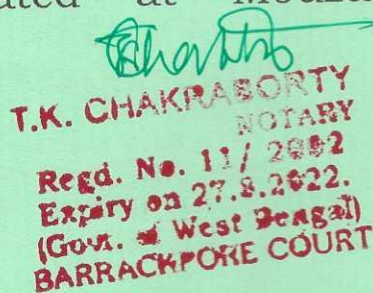 ated at Mouza
T.K. CHAKRABORTY
NOTARY
Regd. No. 11/ 2002
Expiry on 27.8.2022.
(Govt. of West Bengal)
BARRACKPORE COURT